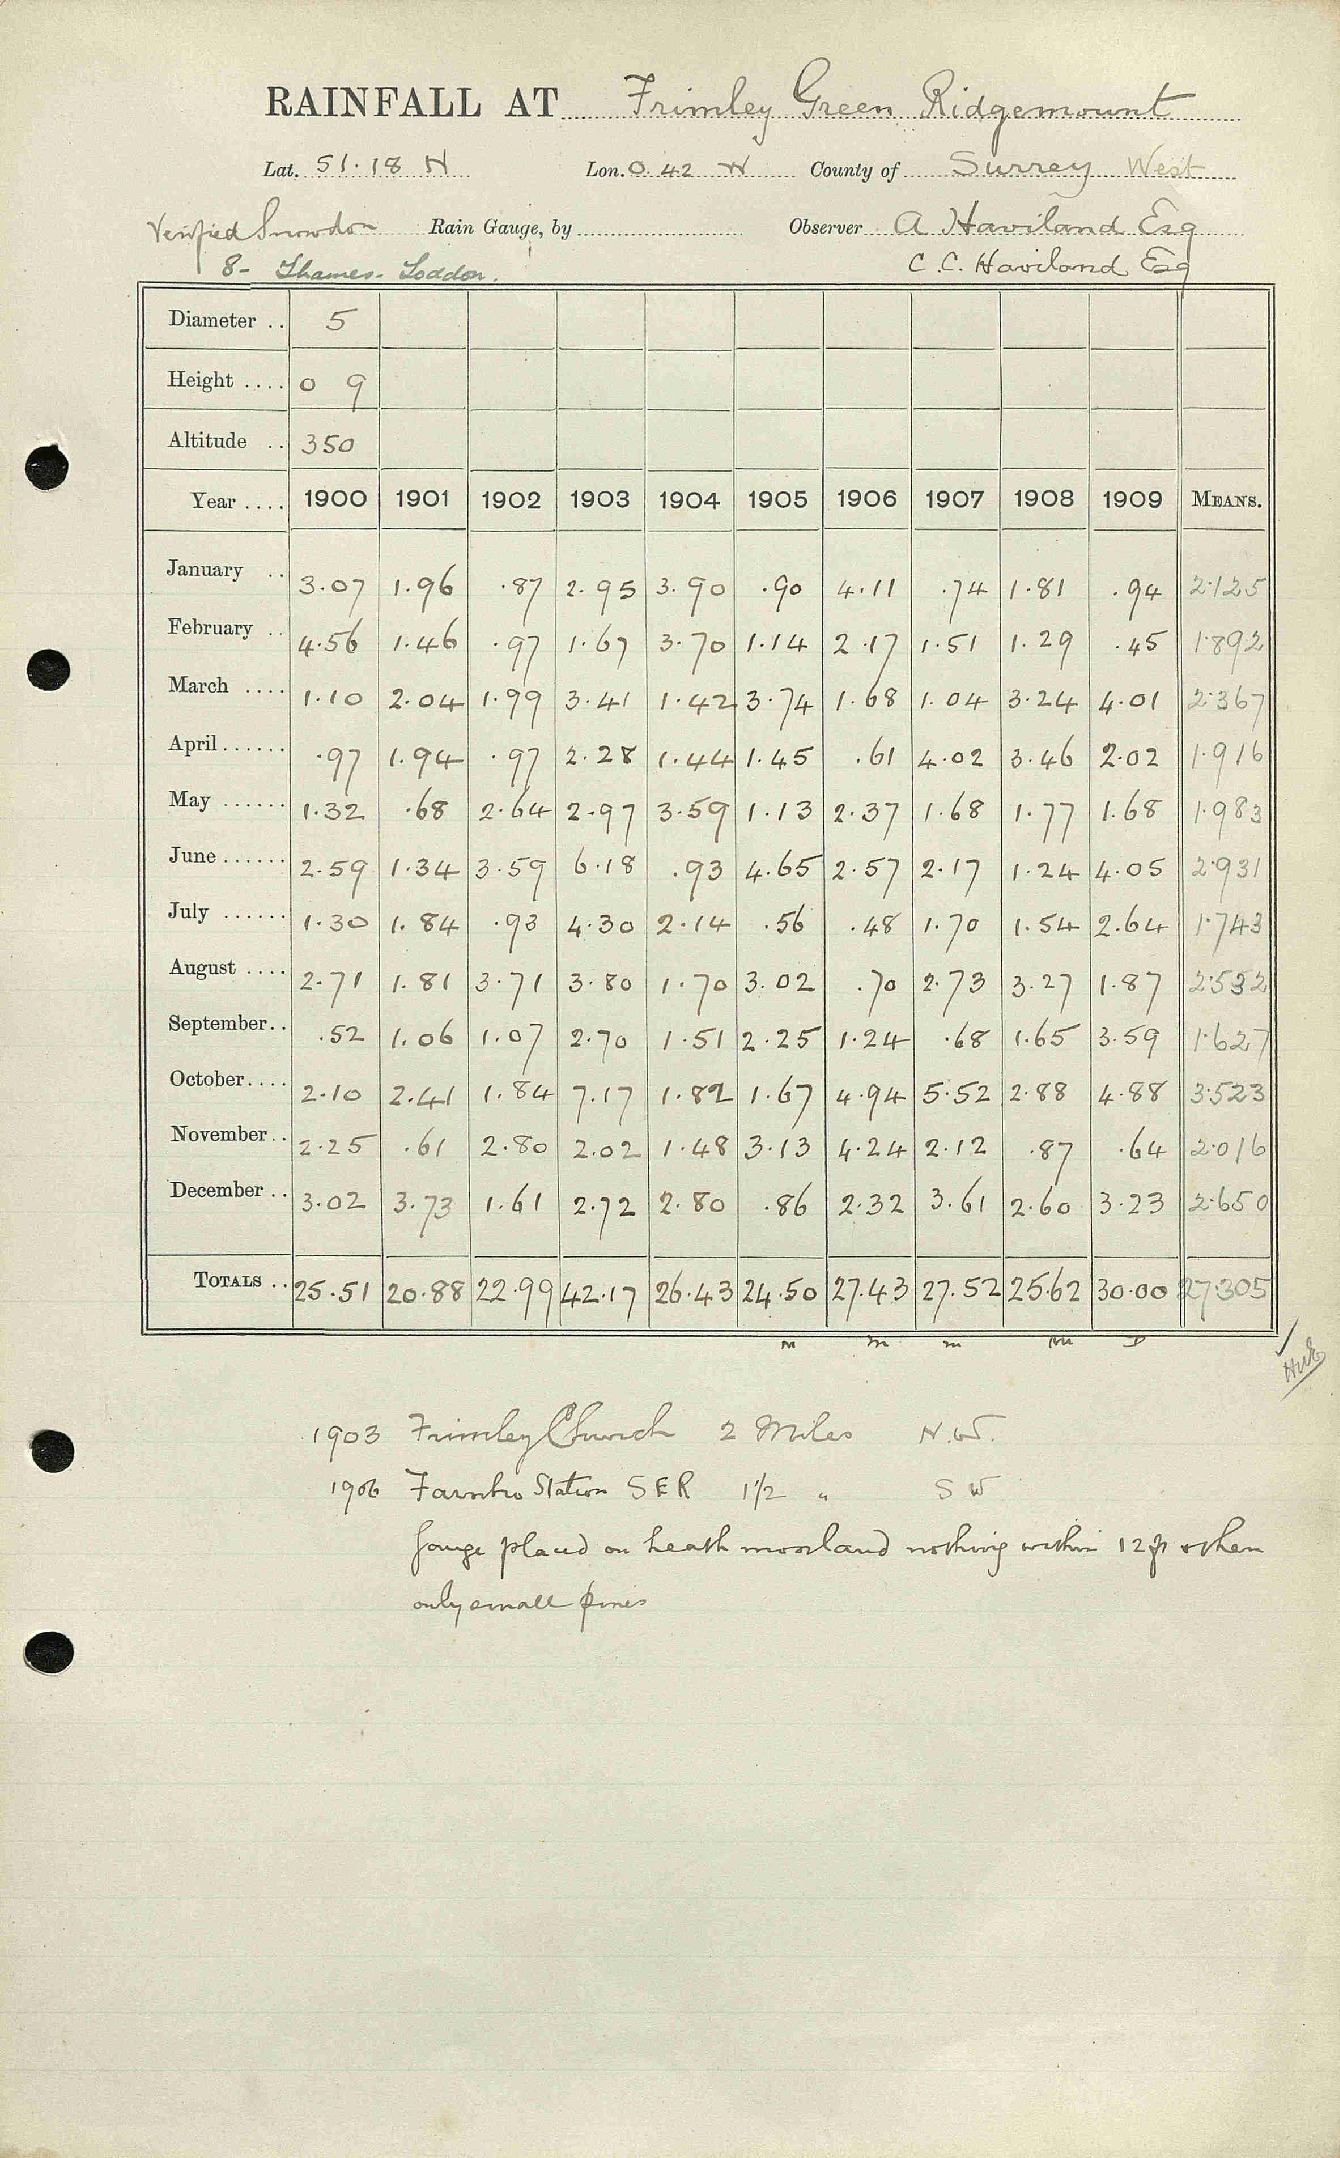 RAINFALL AT Frimley Green Ridgemount
Lat. 51.18 N Lon. 0.42 W County of Surrey West
Verified Snowdon Rain Gauge, by Observer A Haviland Esq
8- Thames-Loddon. C.C. Haviland Esq
Diameter .. 5
Height .... 0 9
Altitude .. 350
Year .... 1900 1901 1902 1903 1904 1905 1906 1907 1908 1909 MEANS.
January .. 3.07 1.96 .87 2.95 3.90 .90 4.11 .74 1.81 .94 2.125
February .. 4.56 1.46 .97 1.67 3.70 1.14 2.17 1.51 1.29 .45 1.892
March .... 1.10 2.04 1.99 3.41 1.42 3.74 1.68 1.04 3.24 4.01 2.367
April ...... .97 1.94 .97 2.28 1.44 1.45 .61 4.02 3.46 2.02 1.916
May ...... 1.32 .68 2.64 2.97 3.59 1.13 2.37 1.68 1.77 1.68 1.983
June ...... 2.59 1.34 3.59 6.18 .93 4.65 2.57 2.17 1.24 4.05 2.931
July ...... 1.30 1.84 .93 4.30 2.14 .56 .48 1.70 1.54 2.64 1.743
August .... 2.71 1.81 3.71 3.80 1.70 3.02 .70 2.73 3.27 1.87 2.532
September.. .52 1.06 1.07 2.70 1.51 2.25 1.24 .68 1.65 3.59 1.627
October.... 2.10 2.41 1.84 7.17 1.82 1.67 4.94 5.52 2.88 4.88 3.523
November.. 2.25 .61 2.80 2.02 1.48 3.13 4.24 2.12 .87 .64 2.016
December .. 3.02 3.73 1.61 2.72 2.80 .86 2.32 3.61 2.60 3.23 2.650
TOTALS .. 25.51 20.88 22.99 42.17 26.43 24.50 27.43 27.52 25.62 30.00 27.305
1903 Frimley Church 2 Miles N.W.
1906 Farnbro Station SER 1 1/2 " S W
Gauge placed on heath moorland nothing within 12 ft & then
only small pines